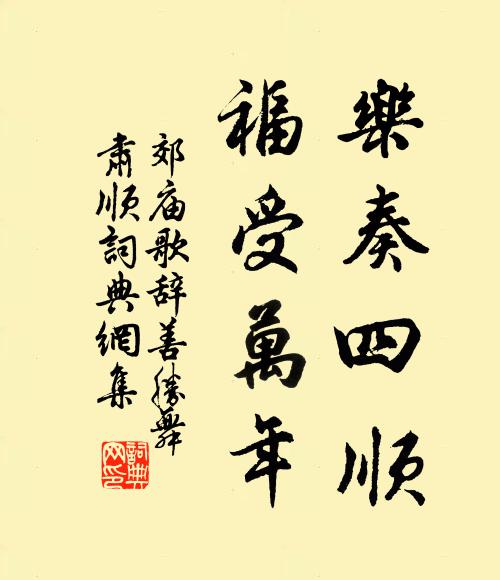 樂奏四順
福受萬年
郊庙歌辞善勝舞
肅順詞典網集
詞典
网印